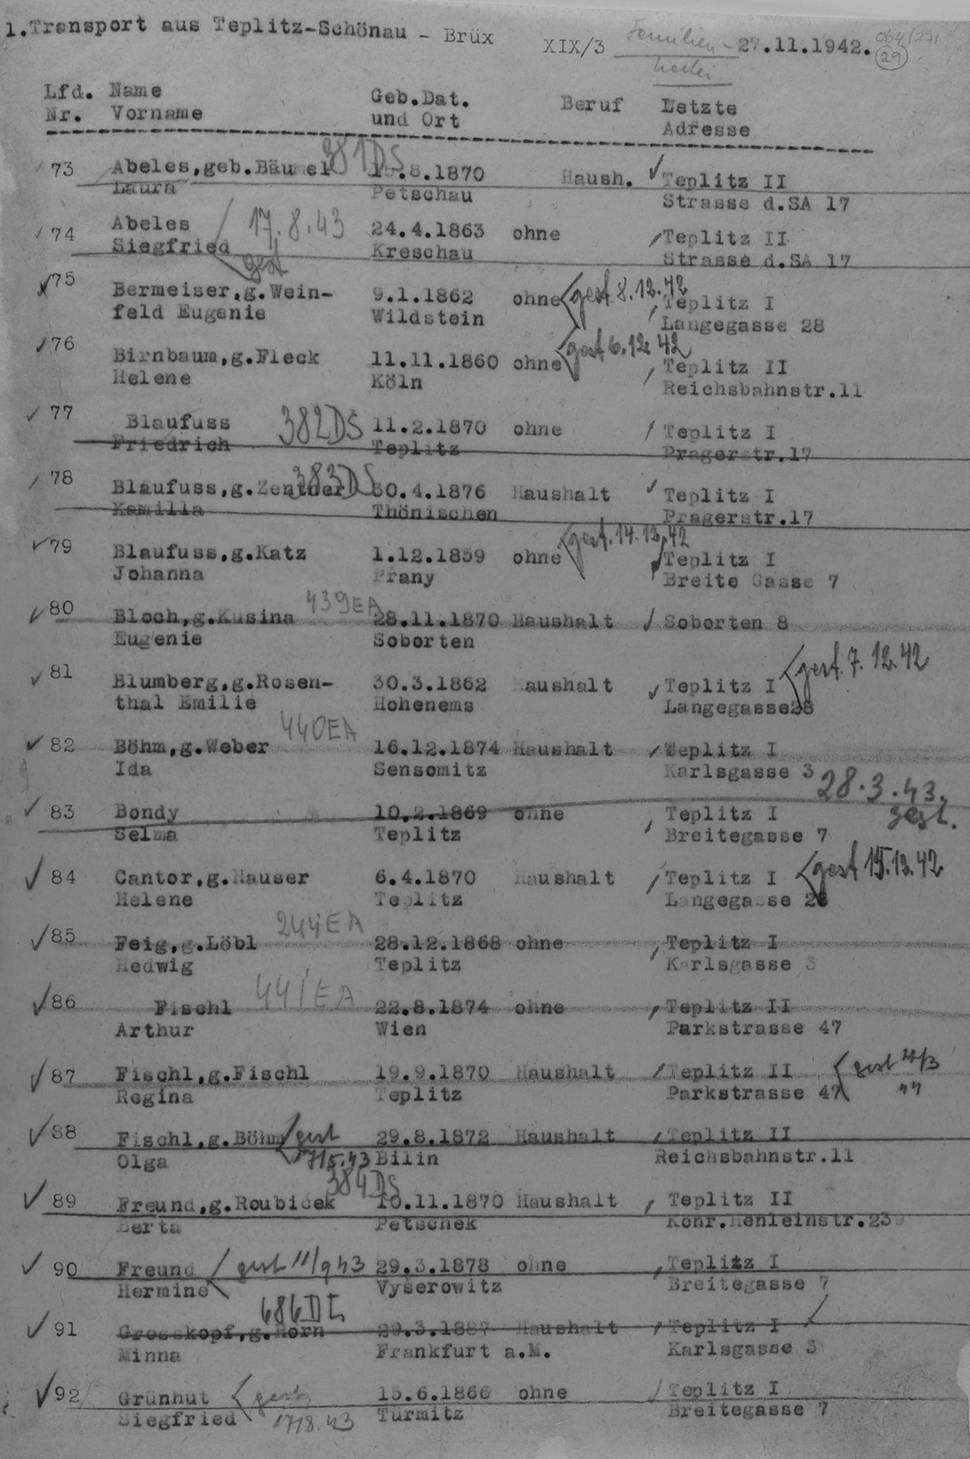 1.Transport aus Teplitz-Schönau - Brüx XIX/3 Familien- 27.11.1942. 064/271
29
Lfd. Name Geb.Dat. Beruf Letzte
Nr. Vorname und Ort Adresse
381DS
73 Abeles,geb.Bäumel .8.1870 Haush. Teplitz II
Laura Petschau Strasse d.SA 17
74 Abeles 17.8.43 24.4.1863 ohne Teplitz II
Siegfried gest Kreschau Strasse d.SA 17
75 Bermeiser,g.Wein- 9.1.1862 ohne gest.8.12.42 Teplitz I
feld Eugenie Wildstein Langegasse 28
76 Birnbaum,g.Fleck 11.11.1860 ohne gest 6.12.42 Teplitz II
Helene Köln Reichsbahnstr.11
77 Blaufuss 382DS 11.2.1870 ohne Teplitz I
Friedrich Teplitz Pragerstr.17
78 Blaufuss,g.Zentner 383DS 30.4.1876 Haushalt Teplitz I
Kamilla Thönischen Pragerstr.17
79 Blaufuss,g.Katz 1.12.1859 ohne gest.14.12.42 Teplitz I
Johanna Prany Breite Gasse 7
80 Bloch,g.Kusina 439EA 28.11.1870 Haushalt Soborten 8
Eugenie Soborten
81 Blumberg,g.Rosen- 30.3.1862 Haushalt Teplitz I gest.7.12.42
thal Emilie Hohenems Langegasse28
440EA
82 Böhm,g.Weber 16.12.1874 Haushalt Teplitz I
Ida Sensomitz Karlsgasse 3
83 Bondy 10.2.1869 ohne Teplitz I 28.3.43.
Selma Teplitz Breitegasse 7 gest.
84 Cantor,g.Hauser 6.4.1870 Haushalt Teplitz I gest 15.12.42
Helene Teplitz Langegasse 28
85 Feig,g.Löbl 244EA 28.12.1868 ohne Teplitz I
Hedwig Teplitz Karlsgasse 3
86 Fischl 441EA 22.8.1874 ohne Teplitz II
Arthur Wien Parkstrasse 47
87 Fischl,g.Fischl 19.9.1870 Haushalt Teplitz II gest
Regina Teplitz Parkstrasse 47
88 Fischl,g.Böhm gest 29.8.1872 Haushalt Teplitz II
Olga 7/5.43 Bilin Reichsbahnstr.11
384DS
89 Freund,g.Roubicek 10.11.1870 Haushalt Teplitz II
Berta Petschek Konr.Henleinstr.239
90 Freund gest 11/9 43 29.3.1878 ohne Teplitz I
Hermine Vyserowitz Breitegasse 7
91 Grosskopf,g.Horn 29.3.1887 Haushalt Teplitz I
Minna Frankfurt a.M. Karlsgasse 3
92 Grünhut gest 15.6.1866 ohne Teplitz I
Siegfried 17/8.43 Türmitz Breitegasse 7